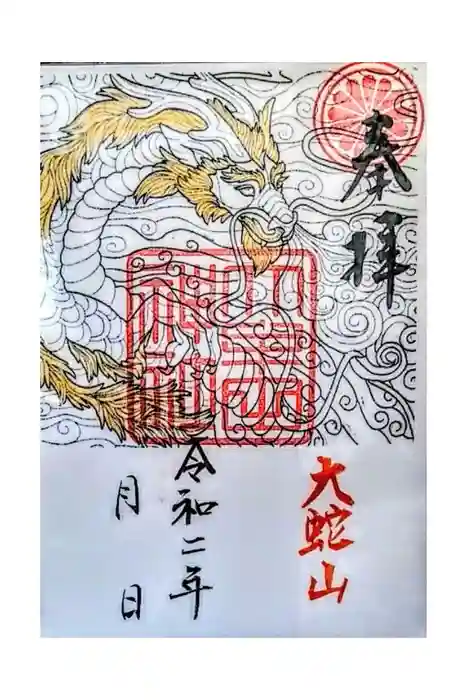 奉拝
大蛇山
令和二年
月 日